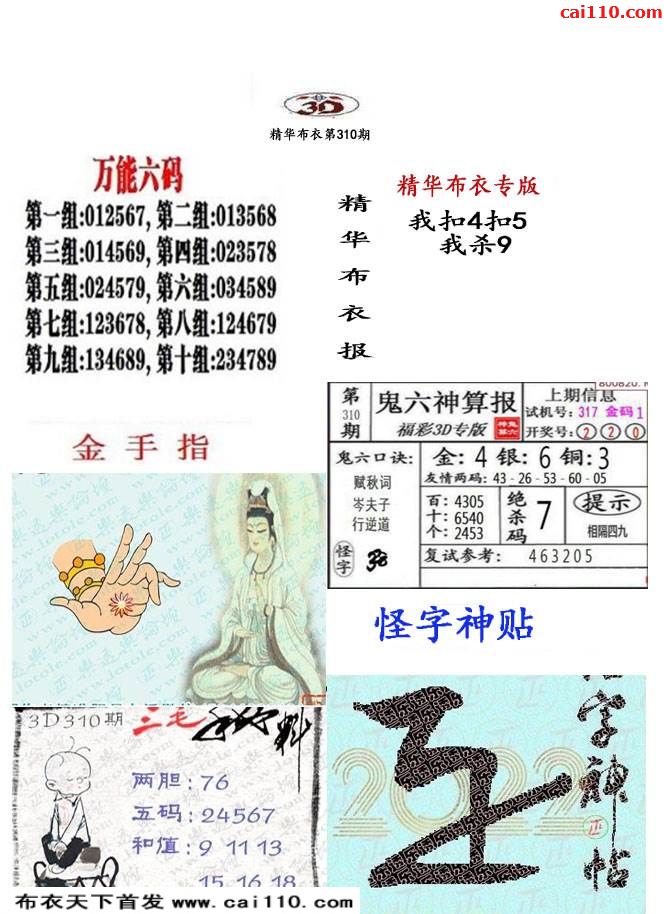 cai110.com
3D
精华布衣第310期
万能六码
第一组:012567, 第二组:013568
第三组:014569, 第四组:023578
第五组:024579, 第六组:034589
第七组:123678, 第八组:124679
第九组:134689, 第十组:234789
精华布衣报
精华布衣专版
我扣4扣5
我杀9
金手指
第310期
鬼六神算报
福彩3D专版
上期信息
试机号: 317 金码1
开奖号: 2 2 0
鬼六口诀:
赋秋词
岑夫子
行逆道
怪字
金: 4 银: 6 铜: 3
友情两码: 43-26-53-60-05
百: 4305
十: 6540
个: 2453
绝杀码 7
提示
相隔四九
复试参考: 463205
怪字神贴
3D310期 三毛
两胆: 76
五码: 24567
和值: 9 11 13
15 16 18
2022
字神帖
布衣天下首发 www.cai110.com